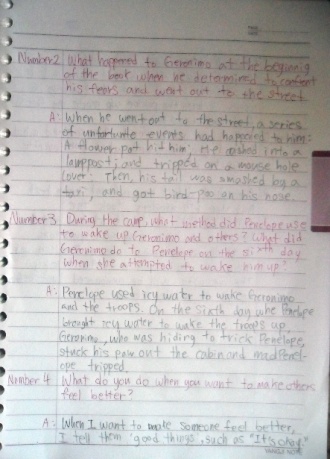 Number2 What happened to Geronimo at the beginnig
of the book when he determined to confront
his fears and went out to the street
A: When he went out to the street, a series
of unfortunate events had happened to him:
A flower pot hit him. He rushed into a
lamppost; and tripped on a mouse hole
cover. Then, his tail was smashed by a
taxi, and got bird-poo on his nose.
Number3 During the camp, what method did Penelope use
to wake up Geronimo and others? What did
Geronimo do to Penelope on the sixth day
when she attempted to wake him up
A: Penelope used icy water to wake Geronimo
and the troops. On the sixth day whe Penelope
brought icy water to wake the troops up
Geronimo, who was hiding to trick Penelope,
stuck his paw out the cabin and mad Penel-
ope tripped.
Number 4 What do you do when you want to make others
feel better?
A: When I want to make someone feel better,
I tell them 'good things', such as "It's okay."